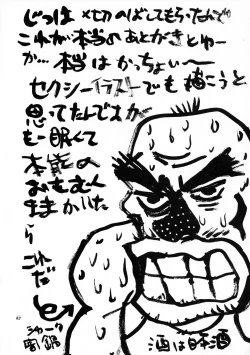 じつは〆切のばしてもらったんで
これが本当のあとがきとゆー
か…本当はかっちょいー
セクシーイラストでも描こうと
思ってたんですが
もー眠くて
本能の
おもむく
ままかいた
ら
これ
だ
シャーク
酒は日本酒